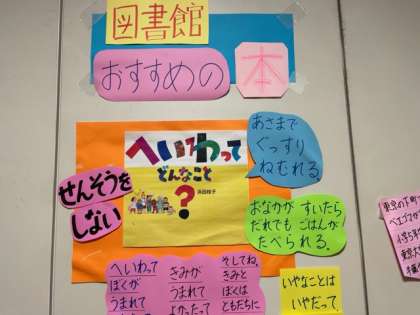 図書館
おすすめの
本
へいわって
どんなこと
?
浜田桂子
せんそうを
しない
あさまで
ぐっすり
ねむれる。
おなかが すいたら
だれでも ごはんが
たべられる。
へいわって
ぼくが
うまれて
きみが
うまれて
よかったって
そしてね、
きみと
ぼくは
ともだちに
いやなことは
いやだって